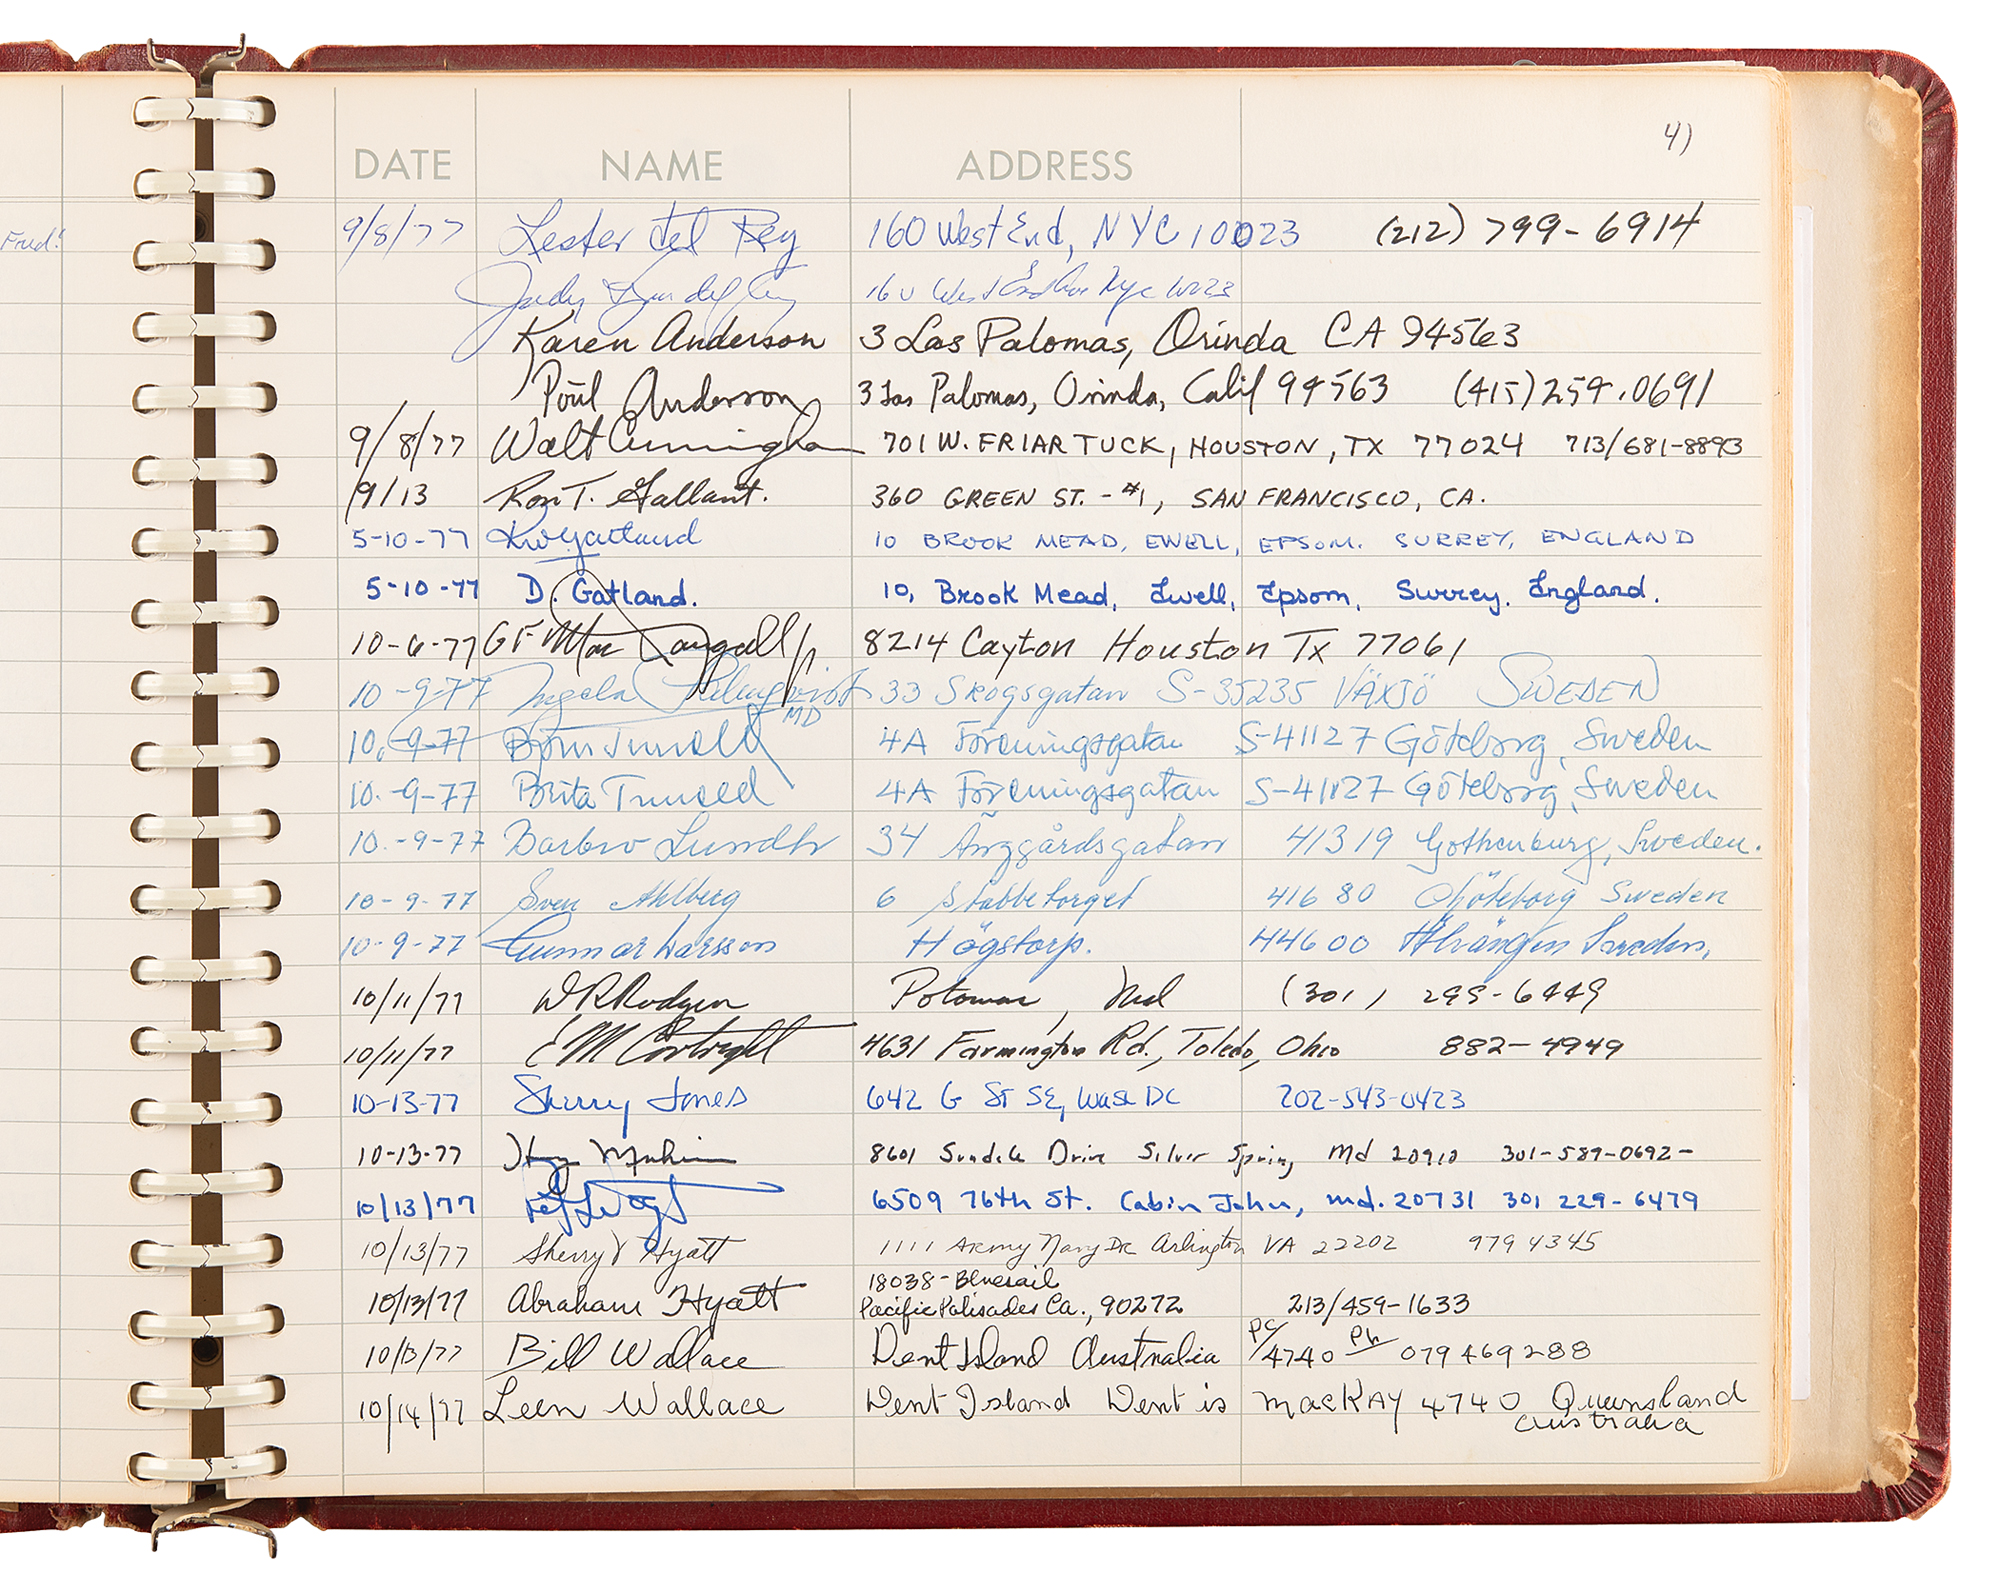 41
Fred!
DATE NAME ADDRESS
9/8/77 Lester del Rey 160 West End, NYC 10023 (212) 799-6914
Judy 160 West End Ave Nyc 10023
Karen Anderson 3 Las Palomas, Orinda CA 94563
Poul Anderson 3 Las Palomas, Orinda, Calif 94563 (415) 254.0691
9/8/77 Walt Cunningham 701 W. FRIAR TUCK, HOUSTON, TX 77024 713/681-8893
9/13 Roy T. Gallant. 360 GREEN ST. - #1, SAN FRANCISCO, CA.
5-10-77 KWGatland 10 BROOK MEAD, EWELL, EPSOM. SURREY, ENGLAND
5-10-77 D. Gatland. 10, Brook Mead, Ewell, Epsom, Surrey. England.
10-6-77 G F Mac Jr. 8214 Cayton Houston Tx 77061
10-9-77 Ingela MD 33 Skogsgatan S-35235 VÄXJÖ SWEDEN
10.-9-77 Björn 4A Föreningsgatan S-41127 Göteborg, Sweden
10.-9-77 Brita 4A Föreningsgatan S-41127 Göteborg, Sweden
10.-9-77 Barbro Lundh 34 Änggårdsgatan 41319 Gothenburg, Sweden.
10-9-77 Sven Ahlberg 6 Stabbetorget 41680 Göteborg Sweden
10-9-77 Gunnar Larsson Högstorp. 44600 Älvängen Sweden,
10/11/77 Potomac, Md (301) 299-6449
10/11/77 EM Cortright 4631 Farmington Rd., Toledo, Ohio 882-4949
10-13-77 Sherry Jones 642 G St SE, Wash DC 202-543-0423
10-13-77 8601 Sundale Drive Silver Spring Md 20910 301-589-0692-
10/13/77 6509 76th St. Cabin John, Md. 20731 301 229-6479
10/13/77 Sherry Hyatt 1111 Army Navy Dr Arlington VA 22202 979 4345
10/13/77 Abraham Hyatt 18038-Bluesail
Pacific Palisades Ca., 90272 213/459-1633
10/13/77 Bill Wallace Dent Island Australia PC/4740 Ph 079 469288
10/14/77 Leen Wallace Dent Island Dent is MacKAY 4740 Queensland
Australia